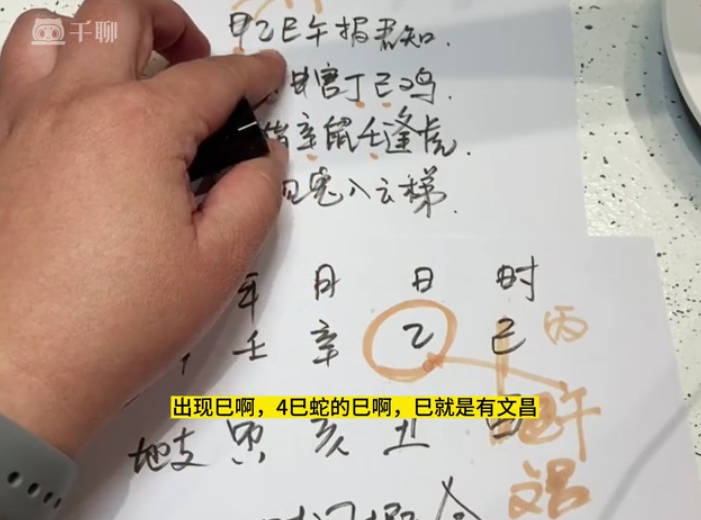 千聊
甲乙巳午报君知.
宫丁己鸡.
辛鼠壬逢虎.
见兔入云梯.
年 月 日 时
壬 辛 乙 己 丙
出现巳啊，4巳蛇的巳啊，巳就是有文昌
地支 卯 亥 丑 午
文昌